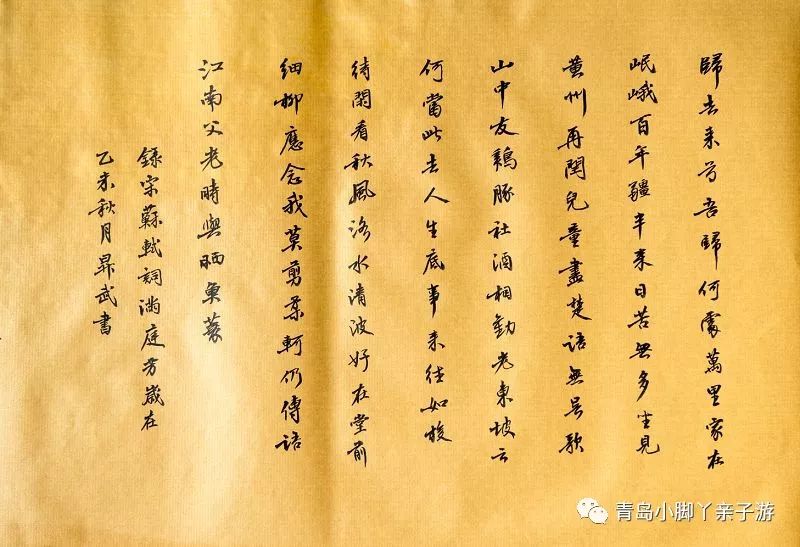 歸去来兮吾歸何處萬里家在
岷峨百年疆半来日苦無多坐見
黄州再閏兒童盡楚語無吴歌
山中友鷄豚社酒相勸老東坡云
何當此去人生底事来往如梭
待閑看秋風洛水清波好在堂前
細柳應念我莫剪柔軻仍傳語
江南父老時與晒魚蓑
錄宋蘇軾詞滿庭芳歲在
乙未秋月昇武書
青岛小脚丫亲子游